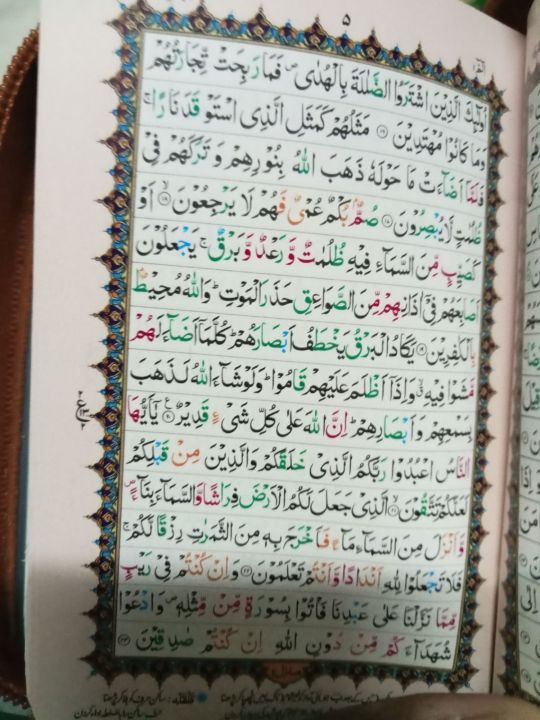 ۵
الٓمّٓ ١
اُولٰٓئِكَ الَّذِيْنَ اشْتَرَوُا الضَّلٰلَةَ بِالْهُدٰى ۪ فَمَا رَبِحَتْ تِّجَارَتُهُمْ
وَمَا كَانُوْا مُهْتَدِيْنَ ﴿١٦﴾ مَثَلُهُمْ كَمَثَلِ الَّذِى اسْتَوْقَدَ نَارًا ۚ
فَلَمَّآ اَضَآءَتْ مَا حَوْلَهٗ ذَهَبَ اللّٰهُ بِنُوْرِهِمْ وَتَرَكَهُمْ فِىْ
ظُلُمٰتٍ لَّا يُبْصِرُوْنَ ﴿١٧﴾ صُمٌّۢ بُكْمٌ عُمْىٌ فَهُمْ لَا يَرْجِعُوْنَ ﴿١٨﴾ اَوْ
كَصَيِّبٍ مِّنَ السَّمَآءِ فِيْهِ ظُلُمٰتٌ وَّرَعْدٌ وَّبَرْقٌ ۚ يَجْعَلُوْنَ
اَصَابِعَهُمْ فِىْٓ اٰذَانِهِمْ مِّنَ الصَّوَاعِقِ حَذَرَ الْمَوْتِ ؕ وَاللّٰهُ مُحِيْطٌۢ
بِالْكٰفِرِيْنَ ﴿١٩﴾ يَكَادُ الْبَرْقُ يَخْطَفُ اَبْصَارَهُمْ ؕ كُلَّمَآ اَضَآءَ لَهُمْ
مَّشَوْا فِيْهِ ۙ وَاِذَآ اَظْلَمَ عَلَيْهِمْ قَامُوْا ؕ وَلَوْ شَآءَ اللّٰهُ لَذَهَبَ
بِسَمْعِهِمْ وَاَبْصَارِهِمْ ؕ اِنَّ اللّٰهَ عَلٰى كُلِّ شَىْءٍ قَدِيْرٌ ﴿٢٠﴾ يٰٓاَيُّهَا
النَّاسُ اعْبُدُوْا رَبَّكُمُ الَّذِىْ خَلَقَكُمْ وَالَّذِيْنَ مِنْ قَبْلِكُمْ
لَعَلَّكُمْ تَتَّقُوْنَ ﴿٢١﴾ الَّذِىْ جَعَلَ لَكُمُ الْاَرْضَ فِرَاشًا وَّالسَّمَآءَ بِنَآءً ۪
وَّاَنْزَلَ مِنَ السَّمَآءِ مَآءً فَاَخْرَجَ بِهٖ مِنَ الثَّمَرٰتِ رِزْقًا لَّكُمْ ۚ
فَلَا تَجْعَلُوْا لِلّٰهِ اَنْدَادًا وَّاَنْتُمْ تَعْلَمُوْنَ ﴿٢٢﴾ وَاِنْ كُنْتُمْ فِىْ رَيْبٍ
مِّمَّا نَزَّلْنَا عَلٰى عَبْدِنَا فَاْتُوْا بِسُوْرَةٍ مِّنْ مِّثْلِهٖ ۪ وَادْعُوْا
شُهَدَآءَكُمْ مِّنْ دُوْنِ اللّٰهِ اِنْ كُنْتُمْ صٰدِقِيْنَ ﴿٢٣﴾